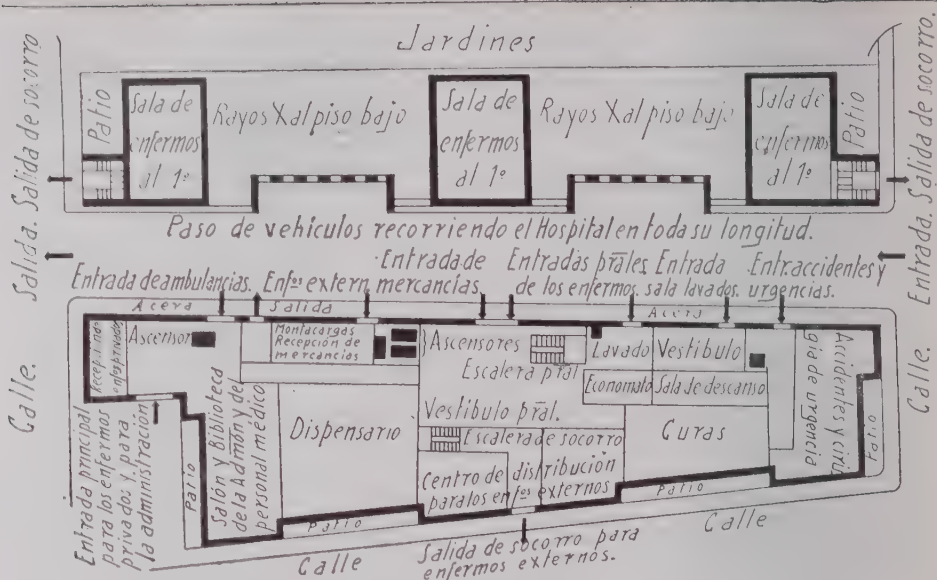 Jardines
Calle. Salida. Salida de socorro
Patio
Sala de
enfermos
al 1º
Rayos X al piso bajo
Sala de
enfermos
al 1º
Rayos X al piso bajo
Sala de
enfermos
al 1º
Patio
Calle. Entrada. Salida de socorro.
Paso de vehículos recorriendo el Hospital en toda su longitud.
Entrada de ambulancias.
Enfos extern.
Entrada de
mercancías
Entradas prāles
de los enfermos.
Entrada
sala lavados.
Entr. accidentes y
urgencias.
Acera
Salida
Acera
enfos privados
Ascensor
Montacargas
Recepción de
mercancías
} Ascensores
Escalera prāl
Lavado
Vestíbulo
Economato
Sala de descanso
Accidentes y ciru-
gia de urgencia
Patio
Entrada principal
para los enfermos
privados y para
la administración
Patio
Salón y Biblioteca
de la Admón y de
personal médico
Dispensario
Vestíbulo prāl.
Escalera de socorro
Centro de distribución
para los enfos externos
Curas
Patio
Patio
Calle
Salida de socorro para
enfermos externos.
Calle